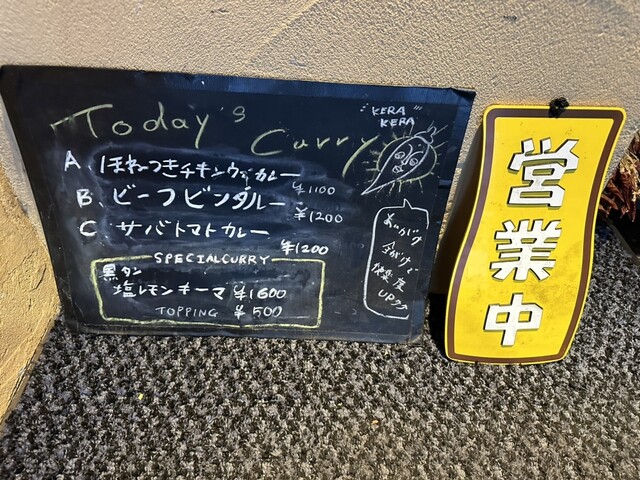 Today's Curry
"KERA KERA"
A. ほねつきチキンウマカレー
¥1100
B. ビーフビンダルー
¥1200
C サバトマトカレー
¥1200
SPECIALCURRY
黒タン
塩レモンキーマ ¥1600
TOPPING ¥500
あいがけ
UP
営業中